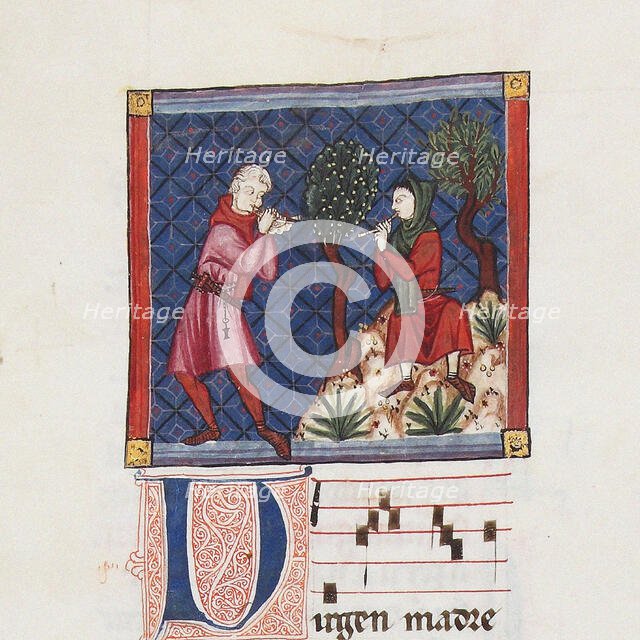 Heritage Heritage
©
Heritage Heritage Heritage
Heritage Heritage
Virgen madre